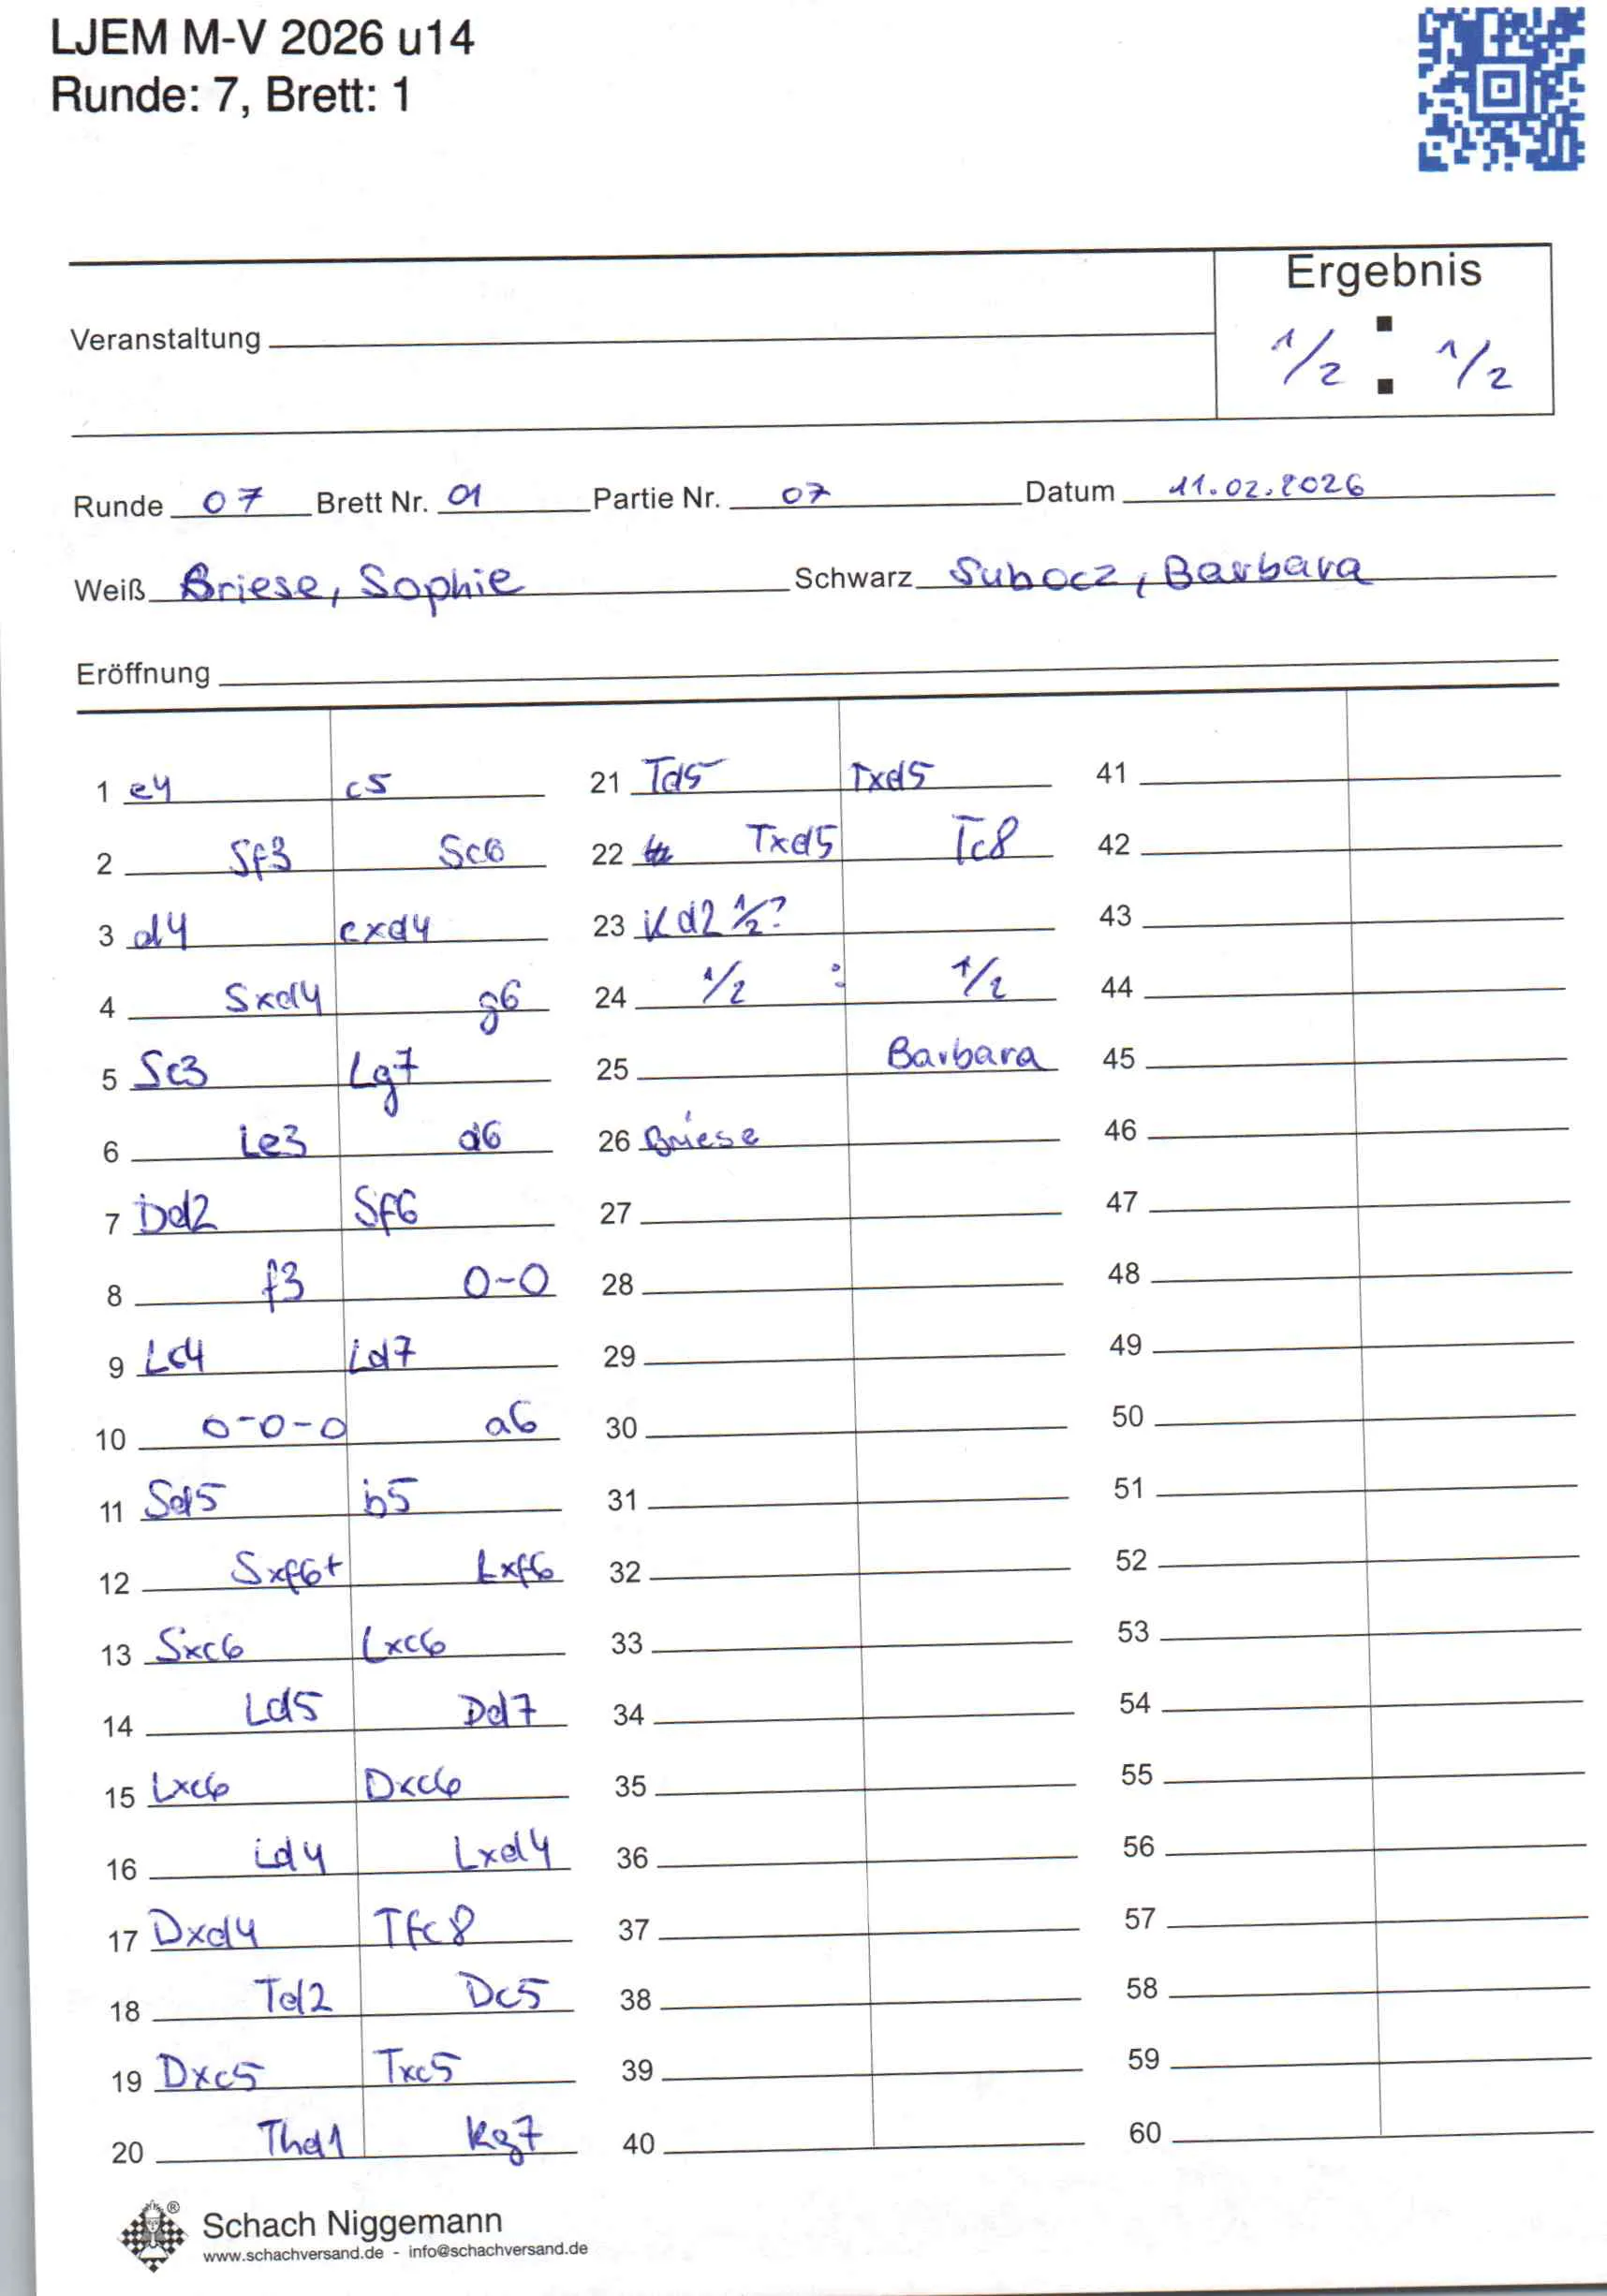 LJEM M-V 2026 u14
Runde: 7, Brett: 1
Ergebnis
Veranstaltung
1/2 : 1/2
Runde 07 Brett Nr. 01 Partie Nr. 07 Datum 11.02.2026
Weiß Briese, Sophie Schwarz Subocz, Barbara
Eröffnung
1 e4 c5
2 Sf3 Sc6
3 d4 cxd4
4 Sxd4 g6
5 Sc3 Lg7
6 Le3 d6
7 Dd2 Sf6
8 f3 0-0
9 Lc4 Ld7
10 0-0-0 a6
11 Sd5 b5
12 Sxf6+ Lxf6
13 Sxc6 Lxc6
14 Ld5 Dd7
15 Lxc6 Dxc6
16 Ld4 Lxd4
17 Dxd4 Tfc8
18 Td2 Dc5
19 Dxc5 Txc5
20 Thd1 Kg7
21 Td5 Txd5
22 Txd5 Tc8
23 Kd2 1/2?
24 1/2 : 1/2
25 Barbara
26 Briese
27
28
29
30
31
32
33
34
35
36
37
38
39
40
41
42
43
44
45
46
47
48
49
50
51
52
53
54
55
56
57
58
59
60
Schach Niggemann
www.schachversand.de - info@schachversand.de